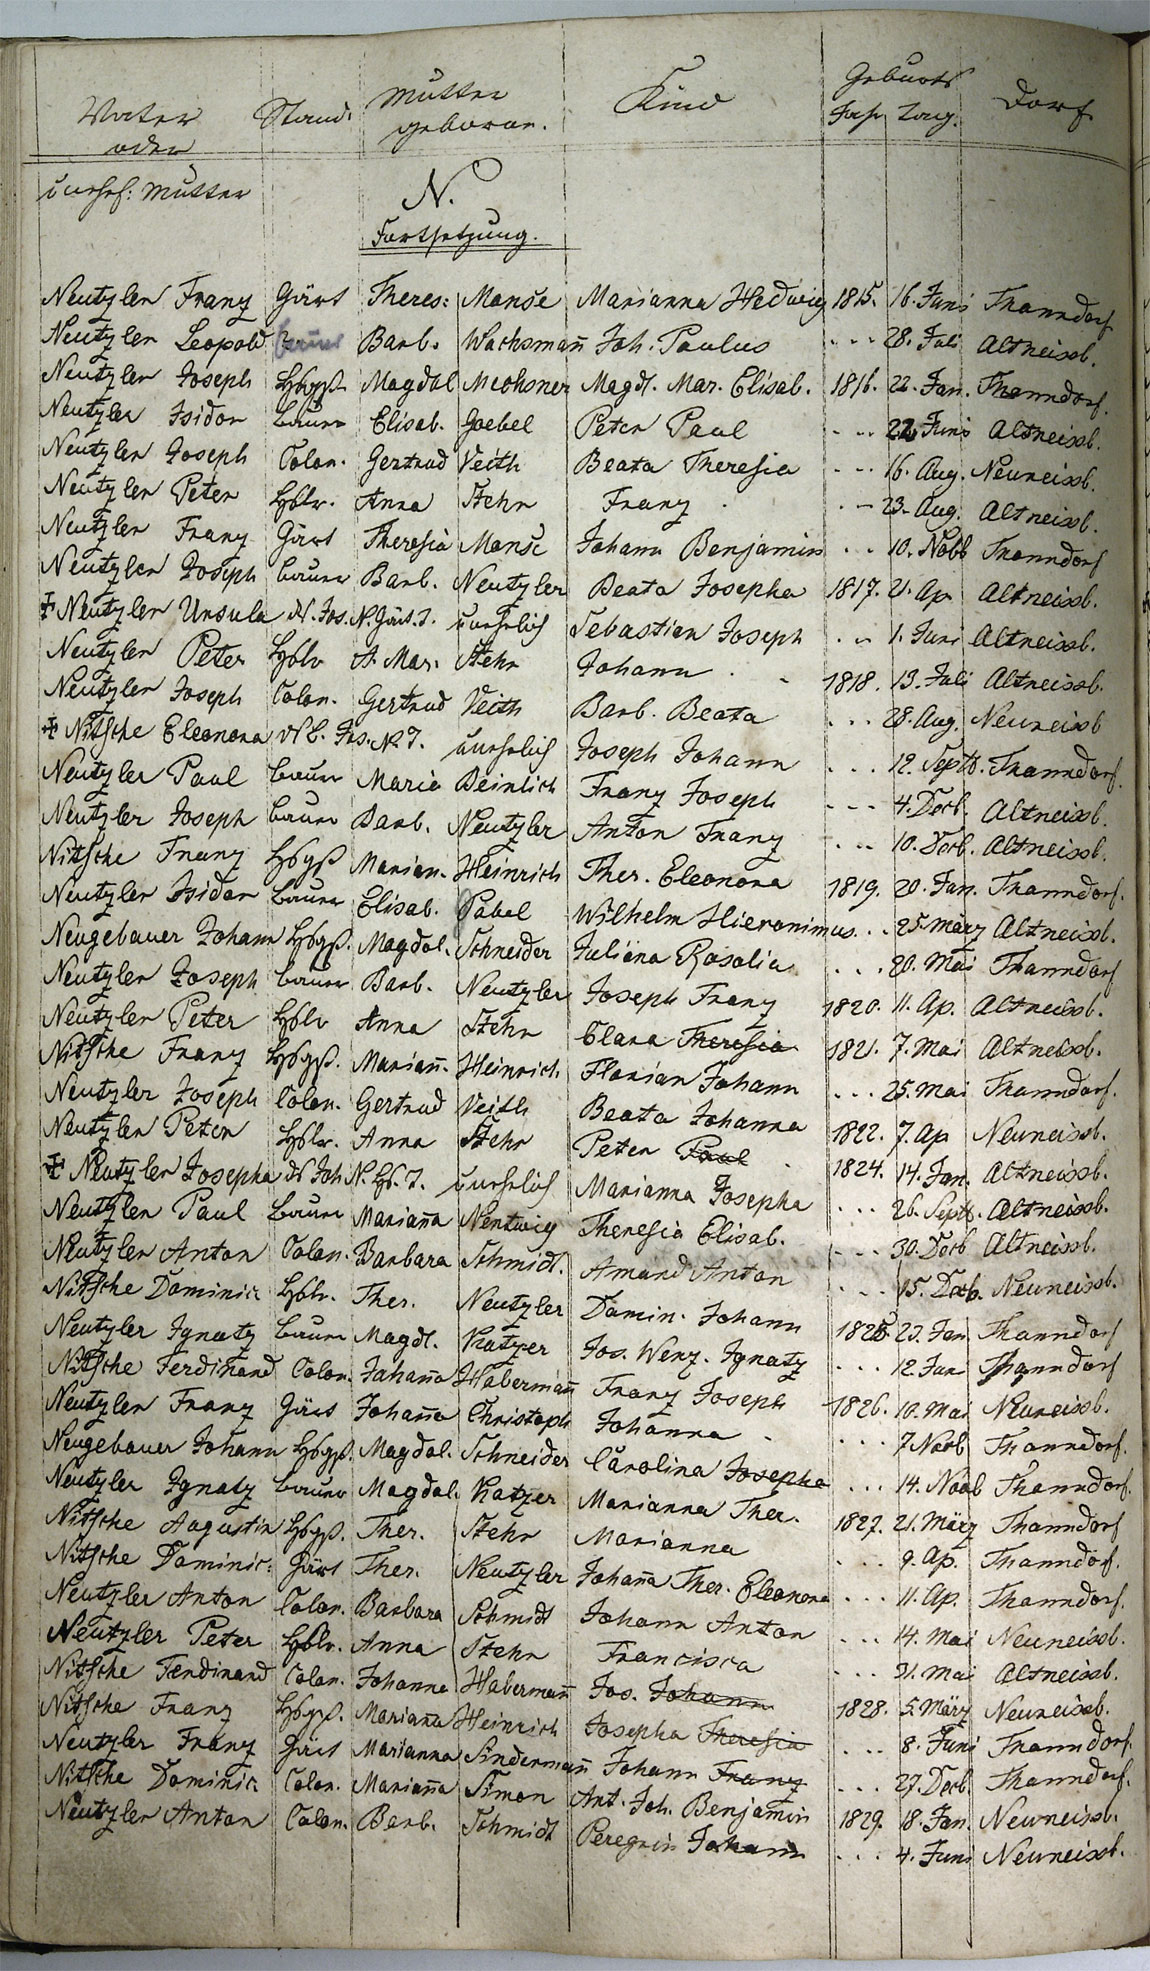 Vater Stand. Mutter Kind Geburts Dorf.
oder geboren. Jahr Tag.
unehl: Mutter
N.
Fortsetzung.
Neutzler Franz Gärt Theres: Manse Marianna Hedwig 1815. 16. Juni Thanndorf
Neutzler Leopold Barb. Wachsmañ Joh. Paulus - - - 28. Juli Altneissb.
Neutzler Joseph Hsgß. Magdal Meohsner Magd. Mar. Elisab. 1816. 22. Jan. Thanndorf.
Neutzler Isidor bauer Elisab. Goebel Peter Paul - - - 22. Juni Altneissb.
Neutzler Joseph Colon. Gertrud Veith Beata Theresia - - - 16. Aug. Neuneissb.
Neutzler Peter Hslr. Anna Stehr Franz . - - 23. Aug. Altneissb.
Neutzler Franz Gärt Theresia Manse Johann Benjamin . . . 10. Novb Thanndorf
Neutzler Joseph bauer Barb. Neutzler Beata Josepha 1817. 21. Ap Altneissb.
Neutzler Ursula d. Jos. N. Gärt. T. unehlich Sebastian Joseph . . - 1. Juni Altneissb.
Neutzler Peter Hslr A. Mar. Stehr Johann . - 1818. 13. Juli Altneissb.
Neutzler Joseph Colon. Gertrud Veith Barb. Beata . . . 28. Aug. Neuneissb
Nitsche Eleonora Jos. N. T. unehrlich Joseph Johann . . . 12. Septb. Thanndorf.
Neutzler Paul bauer Maria Beinlich Franz Joseph - - - 4. Decb. Altneissb.
Neutzler Joseph bauer Barb. Neutzler Anton Franz - . . 10. Decb. Altneissb.
Nitsche Franz Hsgß Marian. Heinrich Ther. Eleonora 1819. 20. Jan. Thanndorf.
Neutzler Isidor bauer Elisab. Pabel Wilhelm Hieronimus . . . 25. März Altneissb.
Neugebauer Johann Hsgß. Magdal. Schneider Juliana Rosalia . . . 20. Mai Thanndorf
Neutzler Joseph bauer Barb. Neutzler Joseph Franz 1820. 11. Ap. Altneissb.
Neutzler Peter Hslr Anna Stehr Clara Theresia 1821. 7. Mai Altneissb.
Nitsche Franz Hsgß. Mariañ. Heinrich Florian Johann . . . 25. Mai Thanndorf.
Neutzler Joseph Colon. Gertrud Veith Beata Johanna 1822. 7. Ap Neuneissb.
Neutzler Peter Hslr. Anna Stehr Peter Paul . 1824. 14. Jan. Altneissb.
Neutzler Josepha d Joh N. Hs. T. unehrlich Marianna Josepha . . . 26. Septb. Altneissb.
Neutzler Paul bauer Mariaña Nentwig Theresia Elisab. . . . 30. Decb Altneissb.
Neutzler Anton Colon. Barbara Schmidt. Amand Anton . . . 15. Decb. Neuneissb.
Nitsche Dominic Hslr. Ther. Neutzler Domin. Johann 1825. 23. Jan Thanndorf
Neutzler Ignatz bauer Magdl. Katzer Jos. Wenz. Ignatz . . . 12. Jun Thanndorf
Nitsche Ferdinand Colon. Johaña Habermañ Franz Joseph 1826. 10. Mai Neuneissb.
Neutzler Franz Gärt Johaña Christoph Johanna . . . . 7 Novb Thanndorf.
Neugebauer Johann Hsgß. Magdal. Schneider Carolina Josepha . . . 14. Novb Thanndorf.
Neutzler Ignatz bauer Magdal. Katzer Marianna Ther. 1827. 21. März Thanndorf
Nitsche Augustin Hsgß. Ther. Stehr Marianna . . . 9. Ap. Thanndorf.
Nitsche Dominic: Gärt Ther. Neutzler Johaña Ther. Eleonora . . . 11. Ap. Thanndorf.
Neutzler Anton Colon. Barbara Schmidt Johann Anton . . . 14. Mai Neuneissb.
Neutzler Peter Hslr. Anna Stehr Francisca . . . 31. Mai Altneissb.
Nitsche Ferdinand Colon. Johanna Habermañ Jos. Johann 1828. 5. März Neuneissb.
Nitsche Franz Hsgß. Mariaña Heinrich Josepha Theresia . . . 8. Juni Thanndorf.
Neutzler Franz Gärt Marianna Sindermañ Johann Franz . . . 27. Decb. Thanndorf.
Nitsche Dominic Colon. Mariaña Simon Ant. Joh. Benjamin 1829. 18. Jan. Neuneissb.
Neutzler Anton Colon. Barb. Schmidt Peregrin Johann . . . 4. Juni Neuneissb.